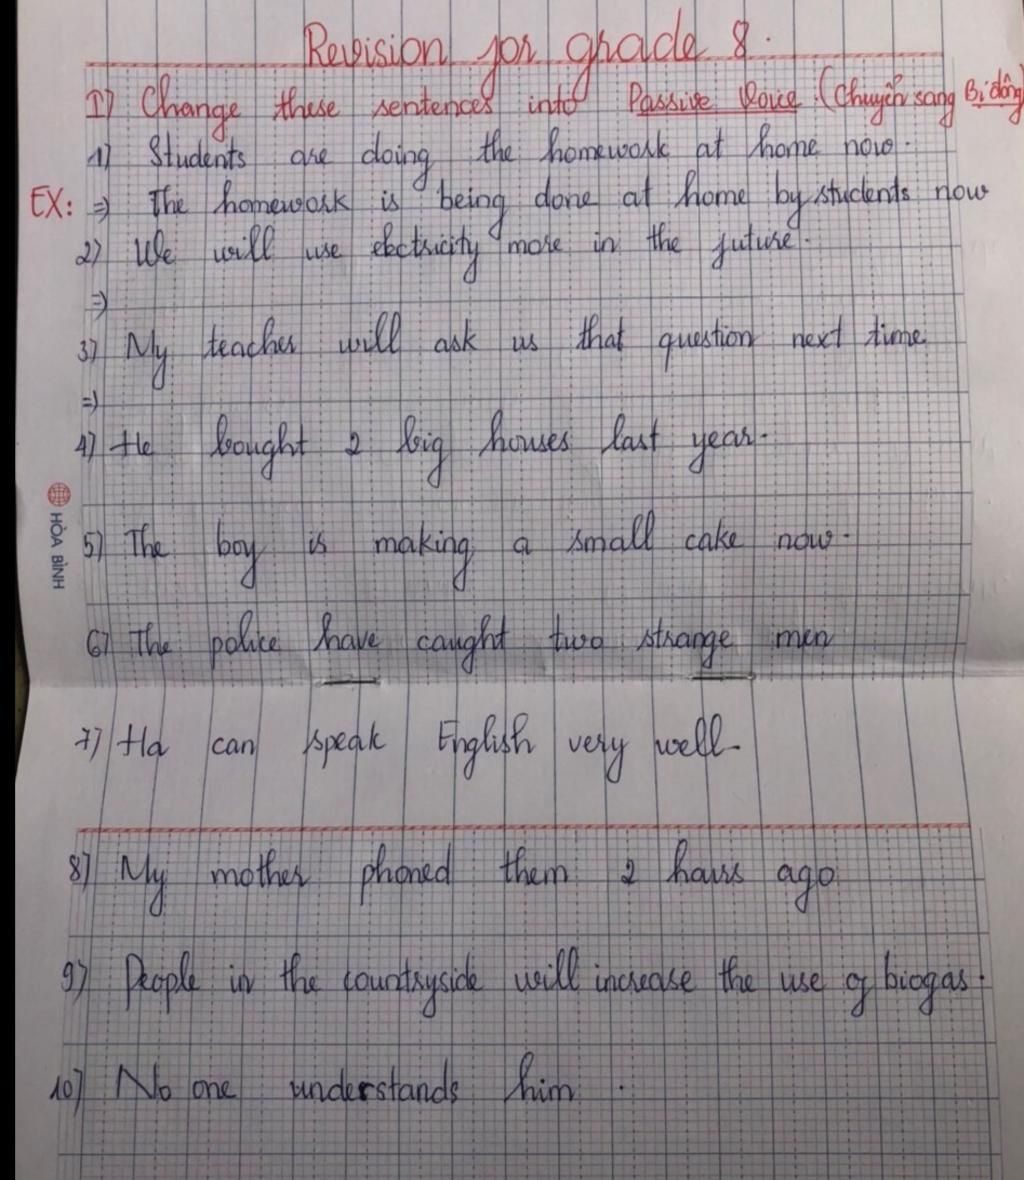 Revision for grade 8.
I) Change these sentences into Passive Voice (Chuyển sang Bị động)
1) Students are doing the homework at home now.
EX: => The homework is being done at home by students now
2) We will use electricity more in the future.
=>
3) My teacher will ask us that question next time
=>
4) He bought 2 big houses last year.
HÒA BÌNH
5) The boy is making a small cake now.
6) The police have caught two strange men
7) Ha can speak English very well.
8) My mother phoned them 2 hours ago
9) People in the countryside will increase the use of biogas.
10) No one understands him.